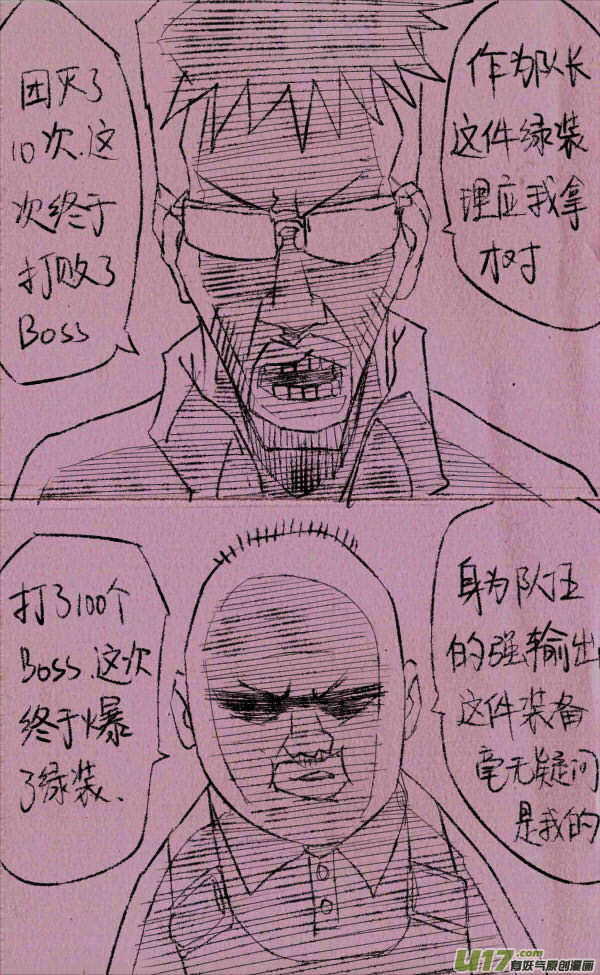 团灭了
10次.这
次终于
打败了
Boss
作为队长
这件绿装
理应我拿
才对
打了100个
Boss.这次
终于爆
了绿装.
身为队伍
的强输出
这件装备
毫无疑问
是我的
U17.com
有妖气原创漫画